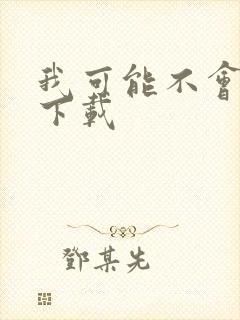 我可能不會
下載
鄧某先